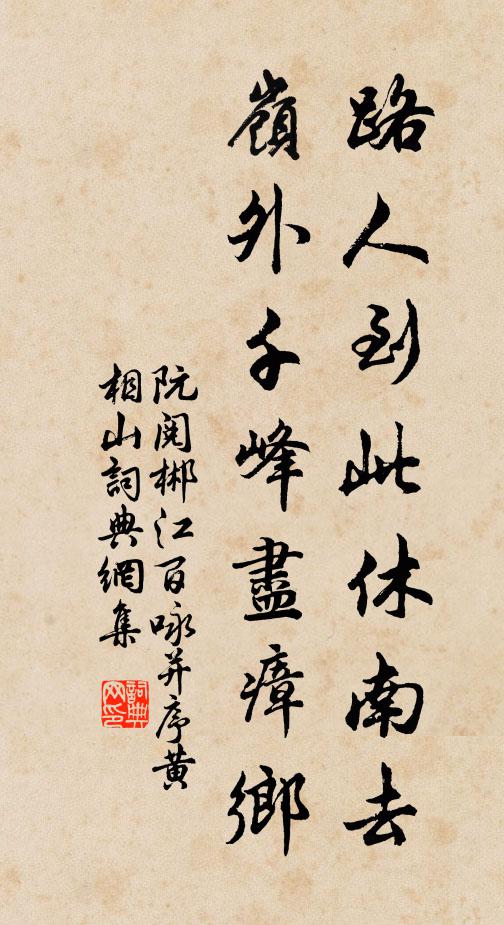 路人到此休南去
嶺外千峰盡瘴鄉
阮閱郴江百咏并序黄
相山詞典網集
詞典網印